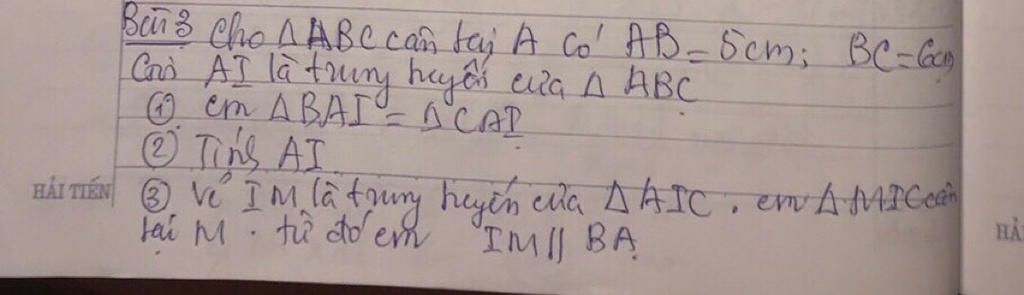 Bài 3 Cho ΔABC cân tại A có AB = 5cm; BC = 6cm
Gọi AI là trung huyến của Δ ABC
① cm ΔBAI = ΔCAI
② Tính AI
③ Vẽ IM là trung huyến của ΔAIC. cm ΔMIC cân
tại M. từ đó cm IM // BA
HẢI TIẾN
HẢ